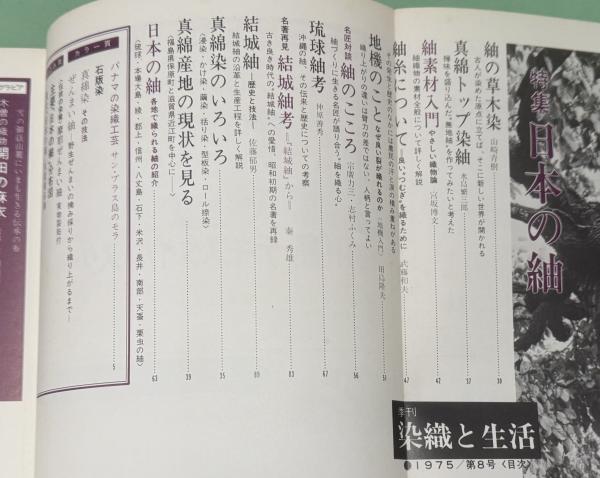 特集 日本の紬
紬の草木染 山崎青樹
古人が深めた原点に立てば、そこに新しい世界が開かれる
39
真綿トップ染紬 水島繁三郎
37
紬素材入門 やさしい織物論 宮坂博文
紬織物の素材全般について詳しく解説
42
紬糸について―良い“つむぎ”を織るために 武藤和夫
47
地機のこころ
〈地機入門〉 田島隆夫
51
名匠対談 紬のこころ 宗廣力三・志村ふくみ
紬づくりに生きる名匠が語り合う“紬を織る心”
56
琉球紬考 仲原善秀
沖縄の紬、その伝来と歴史についての考察
67
名著再見 結城紬考―『結城紬』から― 秦秀雄
古き良き時代の“結城紬”への愛情 昭和初期の名著を再録
83
結城紬―歴史と技法― 佐藤郁男
結城紬の沿革と生産工程を詳しく解説
89
真綿染のいろいろ
〈浸染・かけ染・繭染・括り染・型板染・ロール捺染〉
35
真綿産地の現状を見る
〈福島県保原町と滋賀県近江町を中心に――〉
39
日本の紬 各地で織られる紬の紹介
〈琉球・本場大島・綾・郡上・信州・八丈島・石下・米沢・長井・南部・天蚕・栗虫の紬〉
63
カラー頁
パナマの染織工芸 サン・ブラス島のモラ
5
石版染
真綿染 その技法
ぜんまい紬 野生ぜんまいの摘み採りから織り上がるまで―
グラビア
木曽の織物 開田の麻衣
季刊
染織と生活
●1975/第8号〈目次〉